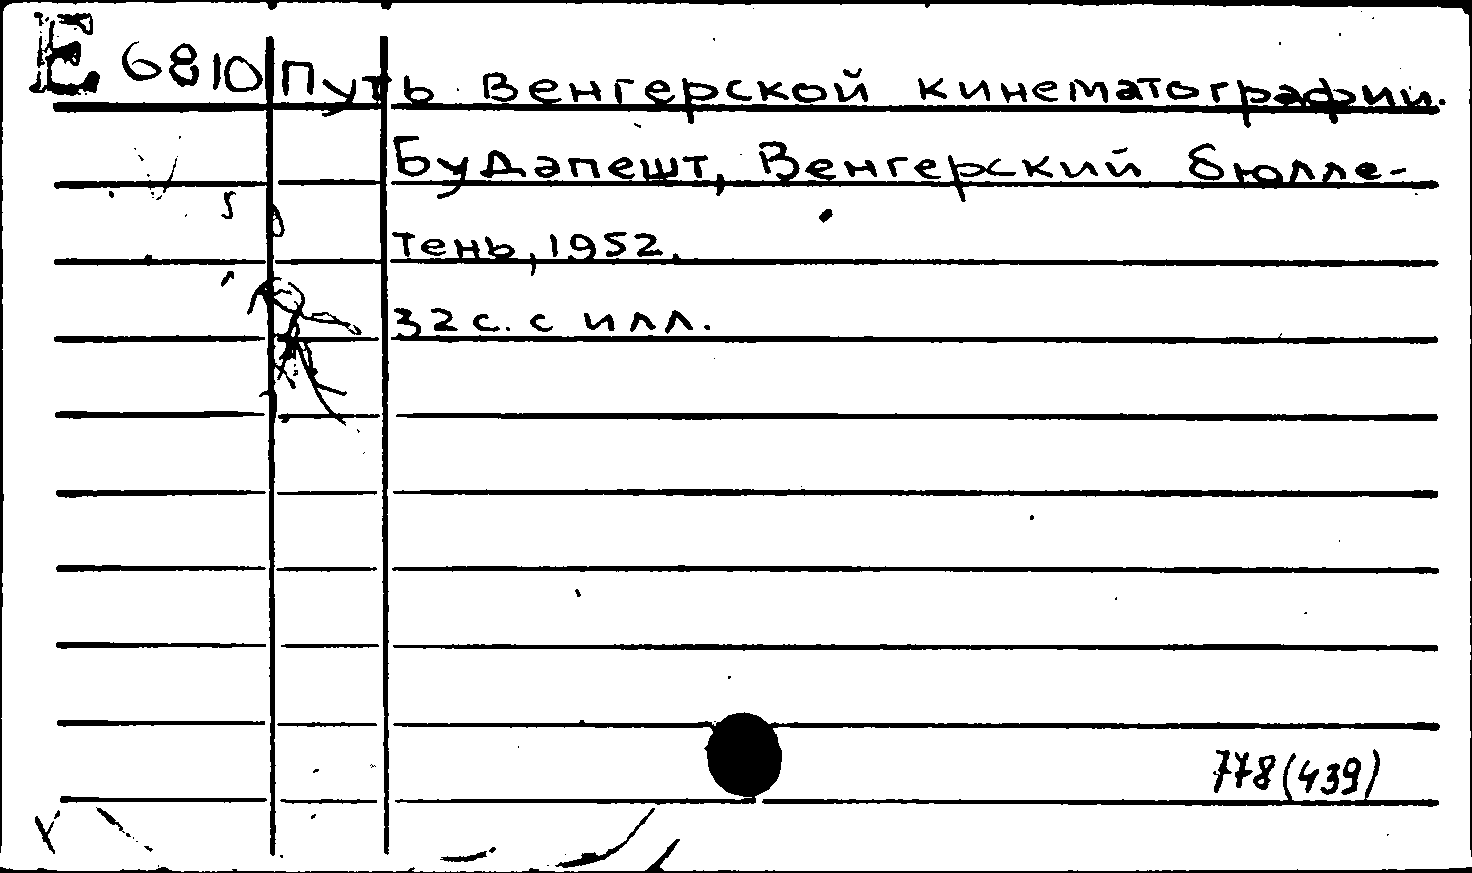 Е 6810 Путь Венгерской кинематографии.
Будапешт, Венгерский бюлле-
тень, 1952.
32 с. с илл.
778(439)